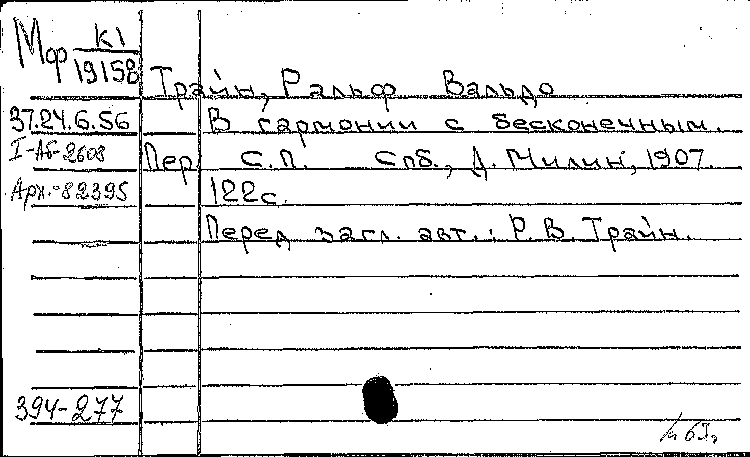 Мф К1
19158
Трайн, Ральф Вальдо
37.24.6.56 В гармонии с бесконечным.
I-Аб-2608 Пер. С.П. Спб., Д. Милин, 1907.
Арх.-82395 122с.
Перед загл. авт.: Р. В. Трайн.
394-277